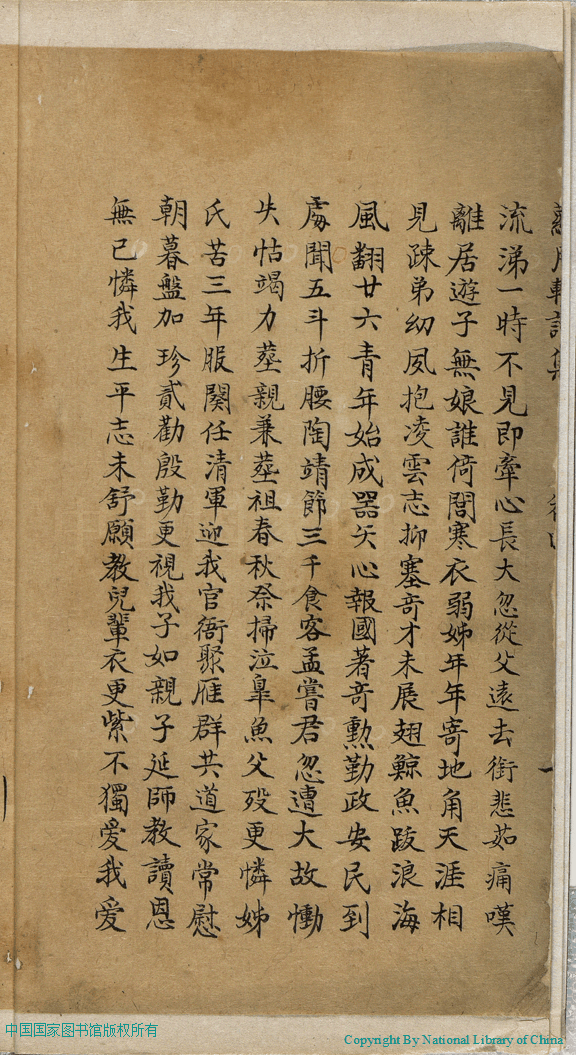 流涕一時不見即牽心長大忽從父遠去銜悲茹痛嘆
離居遊子無娘誰倚閭寒衣弱姊年年寄地角天涯相
見疎弟幼夙抱凌雲志抑塞奇才未展翅鯨魚跋浪海
風翻廿六青年始成器矢心報國著奇勲勤政安民到
處聞五斗折腰陶靖節三千食客孟嘗君忽遭大故慟
失怙竭力塟親兼塟祖春秋祭掃泣臯魚父歿更憐姊
氏苦三年服闋任清軍迎我官衙聚雁群共道家常慰
朝暮盤加珍貳勸殷勤更視我子如親子延師教讀恩
無已憐我生平志未舒願教兒輩衣更紫不獨愛我愛
中国国家图书馆版权所有
Copyright By National Library of China